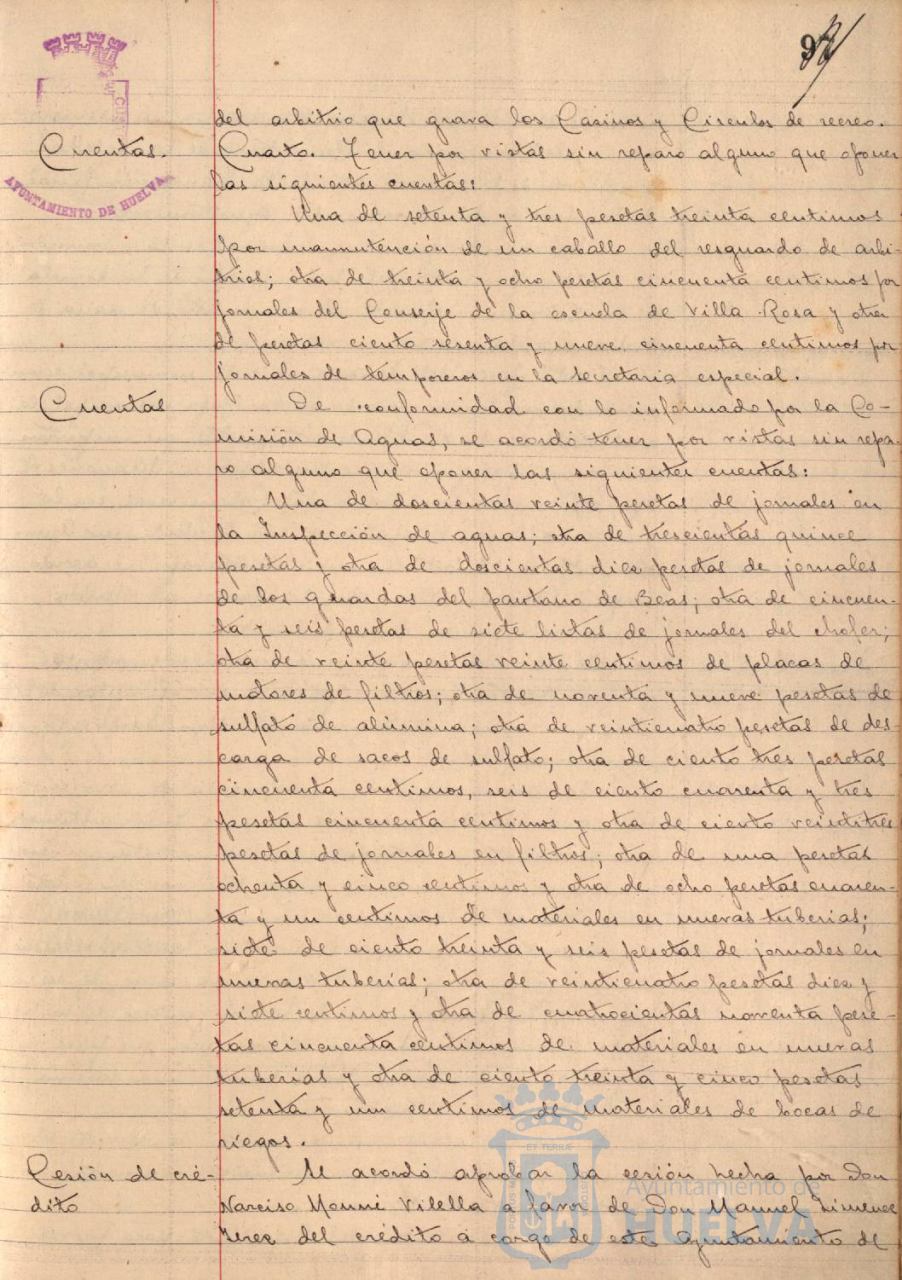 del arbitrio que grava los Casinos y Circulos de recreo.
Cuentas.
Cuarto. Tener por vistas sin reparo alguno que oponer
las siguientes cuentas:
AYUNTAMIENTO DE HUELVA
Una de setenta y tres pesetas treinta centimos
por manutención de un caballo del resguardo de arbi-
trios; otra de treinta y ocho pesetas cincuenta centimos por
jornales del Conserje de la escuela de Villa Rosa y otra
de pesetas ciento sesenta y nueve cincuenta centimos por
jornales de temporeros en la secretaria especial.
Cuentas
De conformidad con lo informado por la Co-
misión de Aguas, se acordó tener por vistas sin repa-
ro alguno que oponer las siguientes cuentas:
Una de doscientas veinte pesetas de jornales en
la Inspección de aguas; otra de trescientas quince
pesetas y otra de doscientas diez pesetas de jornales
de los guardas del pantano de Beas; otra de cincuen-
ta y seis pesetas de siete listas de jornales del chofer;
otra de veinte pesetas veinte centimos de placas de
motores de filtros; otra de noventa y nueve pesetas de
sulfato de alúmina; otra de veinticuatro pesetas de des-
carga de sacos de sulfato; otra de ciento tres pesetas
cincuenta centimos, seis de ciento cuarenta y tres
pesetas cincuenta centimos y otra de ciento veintitres
pesetas de jornales en filtros; otra de una pesetas
ochenta y cinco centimos y otra de ocho pesetas cuaren-
ta y un centimos de materiales en nuevas tuberias;
siete de ciento treinta y seis pesetas de jornales en
nuevas tuberias; otra de veinticuatro pesetas diez y
siete centimos y otra de cuatrocientas noventa pese-
tas cincuenta centimos de materiales en nuevas
tuberias y otra de ciento treinta y cinco pesetas
setenta y un centimos de materiales de bocas de
riegos.
Cesión de cré-
dito
Se acordó aprobar la cesión hecha por Don
Narciso Vilella a favor de Don Manuel Jimenez
Jerez del crédito a cargo de este Ayuntamiento de
Ayuntamiento de
HUELVA